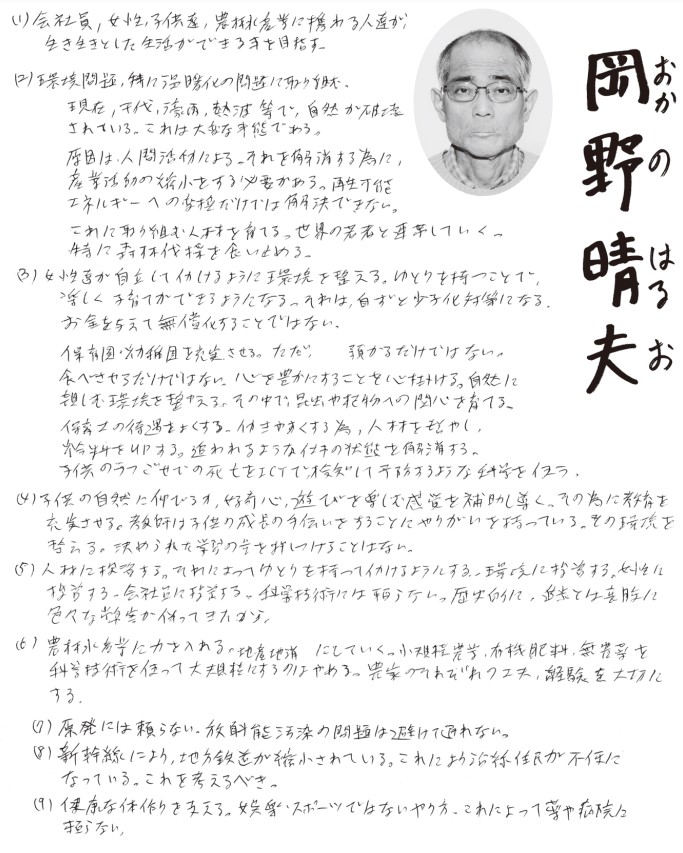 岡野晴夫
おかのはるお
(1) 会社員,女性,子供達,農林水産業に携わる人達が,
生き生きとした生活ができる事を目指す.
(2) 環境問題,特に温暖化の問題に取り組む.
現在,干ばつ,豪雨,熱波等で,自然が破壊
されている。これは大変な事態である。
原因は,人間活動による。それを解消する為に,
産業活動の縮小をする必要がある。再生可能
エネルギーへの変換だけでは解決できない。
これに取り組む人材を育てる。世界の若者と
特に森林伐採を食い止める。
(3) 女性達が自立して働けるように環境を整える。ゆとりを持つことで,
楽しく子育てができるようになる。それは,自ずと少子化対策になる.
お金を与えて無償化することではない.
保育園・幼稚園を充実させる。ただ, 預かるだけではない。
食べさせるだけではない。心を豊かにすることを心掛ける。自然に
親しむ環境を整える。その中で,昆虫や植物への関心を育てる。
保育士の待遇をよくする。仕事やすくする為,人材を増やし,
給料をUPする。追われるような仕事の状態を解消する。
子供のうつぶせでの死亡をICTで検知して予防するような科学を使う.
(4) 子供の自然に伸びる力,好奇心,遊びを楽しむ感覚を補助し導く。その為に教育を
充実させる。教師は子供の成長の手伝いをすることにやりがいを持っている。その環境を
整える。決められた学習の量を押しつけることはない。
(5) 人材に投資する。それによってゆとりを持って働けるようにする。環境に投資する。女性に
投資する。会社員に投資する。科学技術には頼らない。歴史的に,進歩とは裏腹に
色々な弊害が伴ってきたから.
(6) 農林水産業に力を入れる。地産地消 にしていく。小規模農業,有機肥料,無農薬を
科学技術を使って大規模にするのはやめる。農家のそれぞれの工夫,経験を大切に
する.
(7) 原発には頼らない.放射能汚染の問題は避けて通れない。
(8) 新幹線により,地方鉄道が縮小されている。これにより沿線住民が不便に
なっている。これを考えるべき。
(9) 健康な体作りを支える。娯楽・スポーツではないやり方。これによって薬や病院に
頼らない,